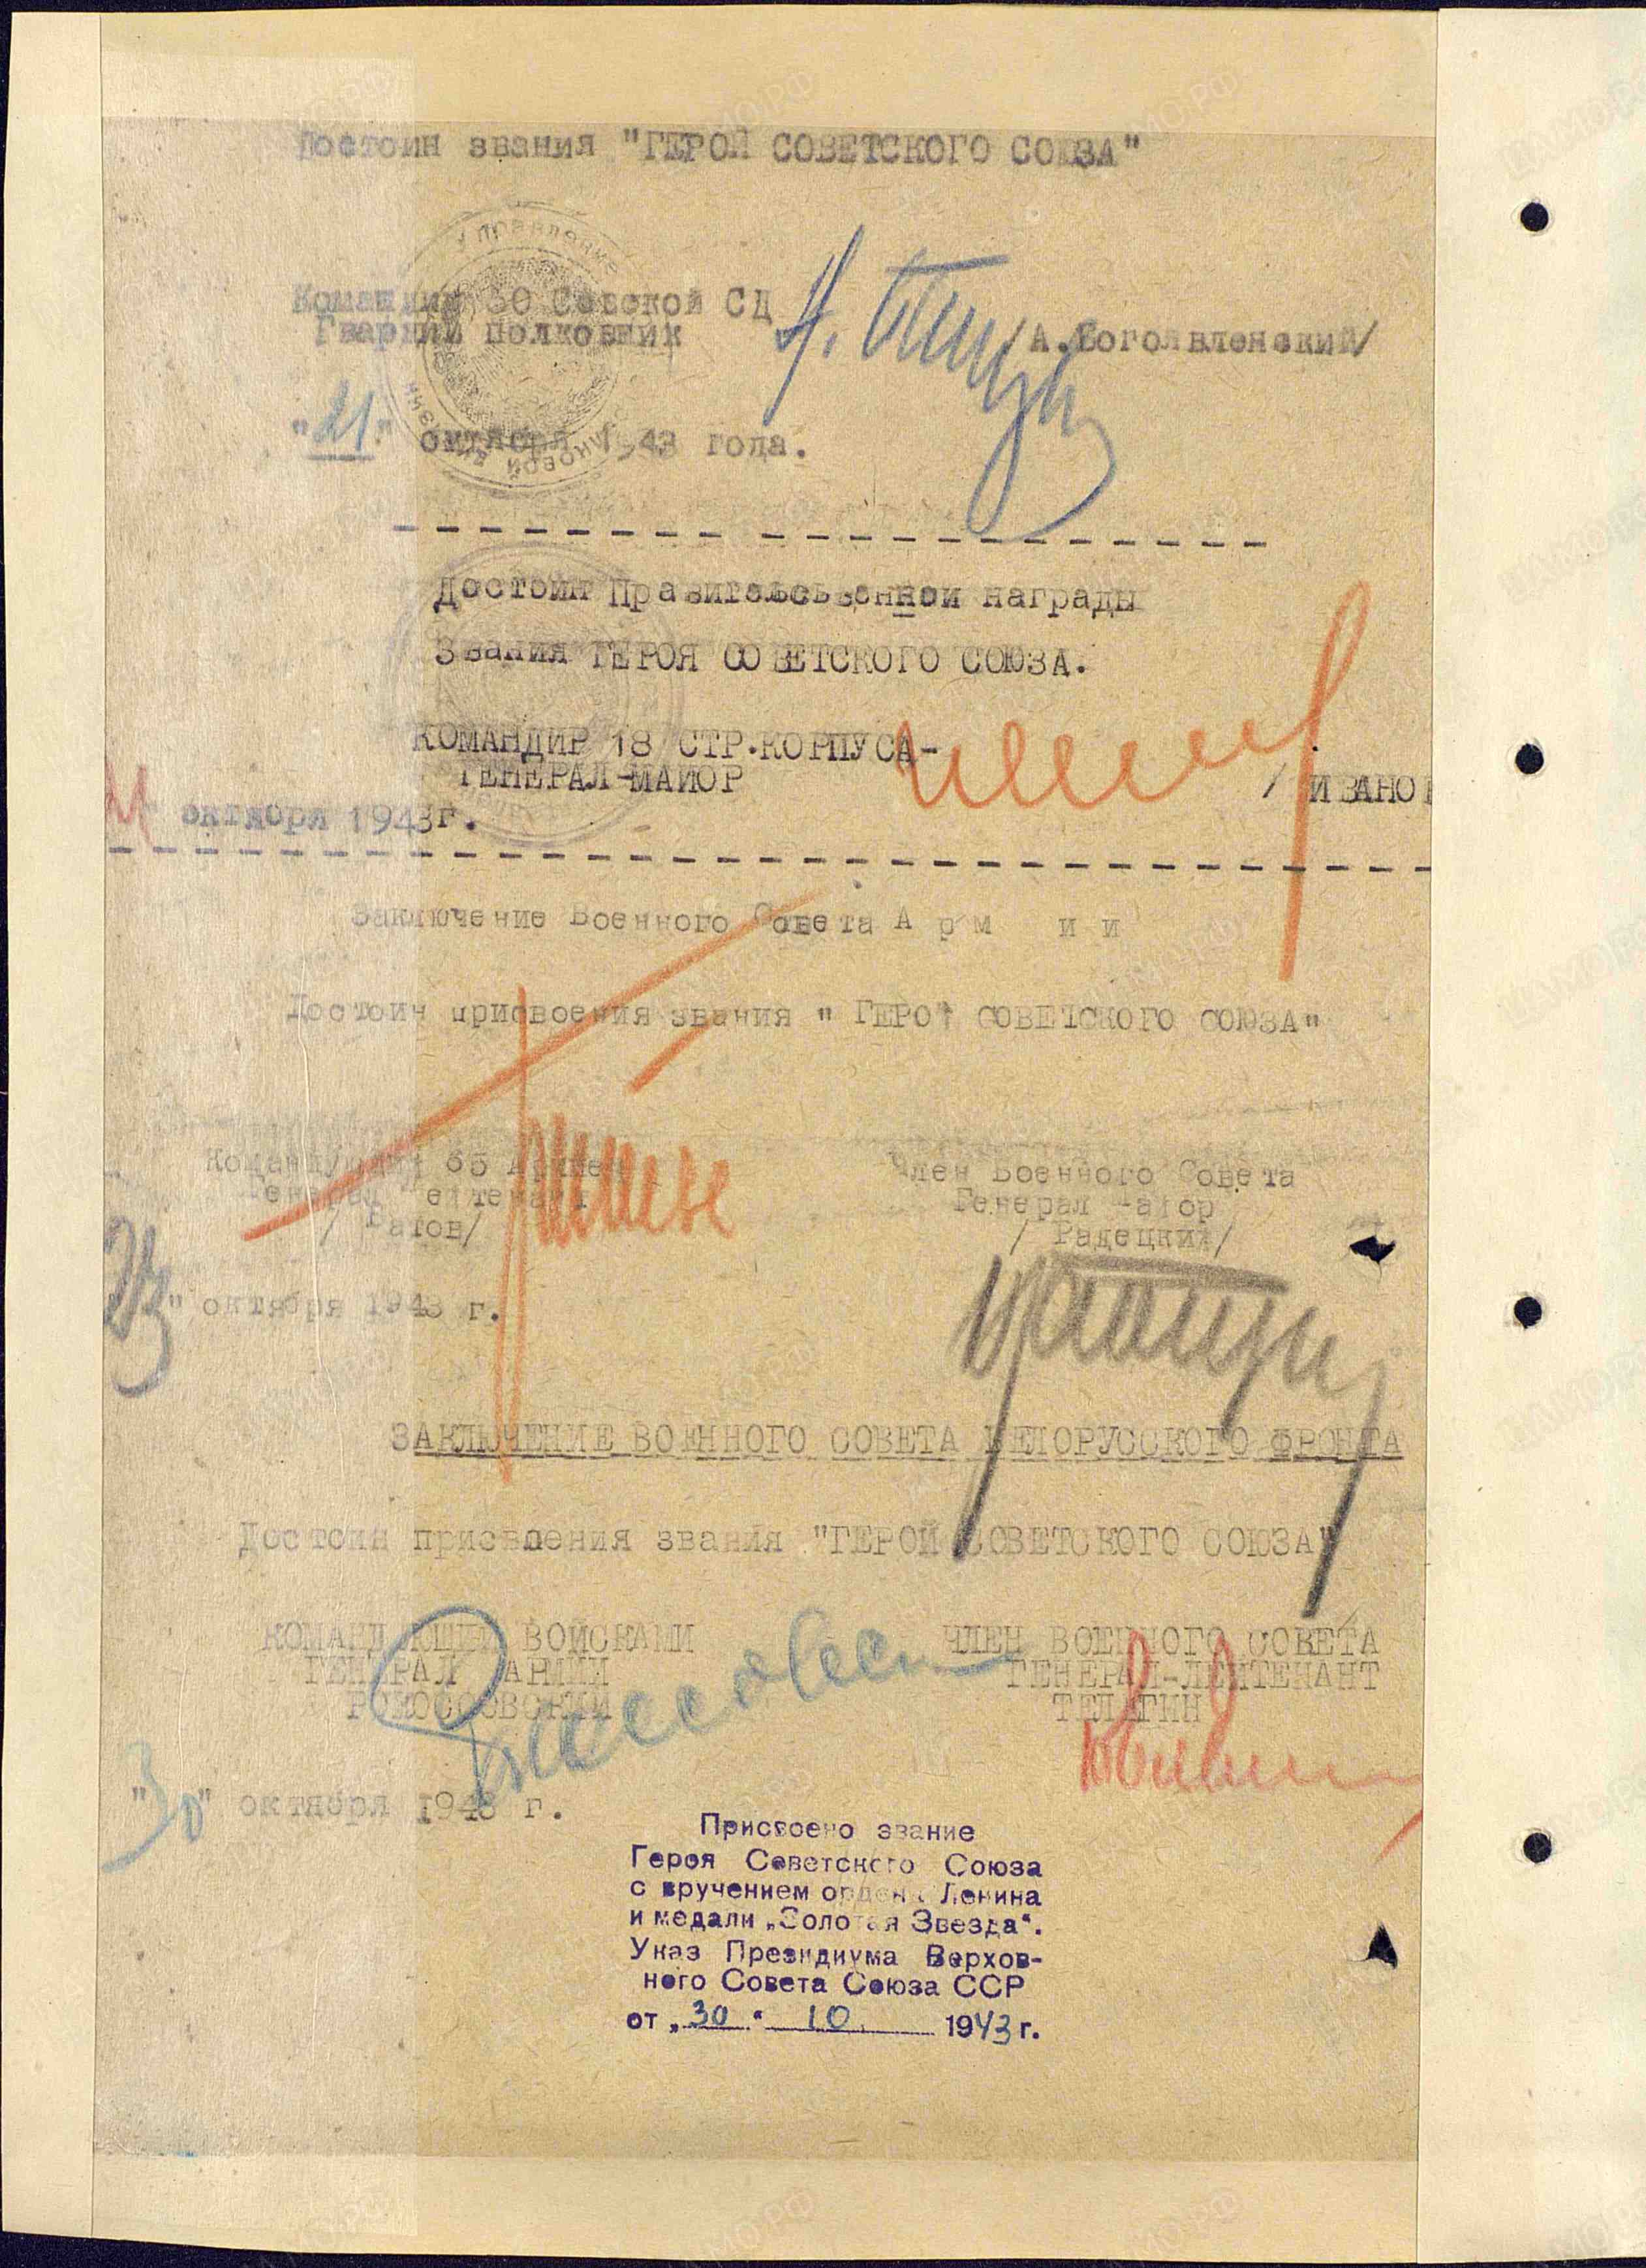 Достоин звания "ГЕРОЙ СОВЕТСКОГО СОЮЗА"
Управление
Командир 30 Севской СД
Гвардии полковник
/А.Богоявленский/
"21" октября 1943 года.
Достоин Правительственной награды
Звания ГЕРОЯ СОВЕТСКОГО СОЮЗА.
КОМАНДИР 18 СТР.КОРПУСА-
ГЕНЕРАЛ-МАЙОР
/ ИВАНОВ
21 октября 1943г.
Заключение Военного Совета А р м и и
Достоин присвоения звания " ГЕРОЙ СОВЕТСКОГО СОЮЗА"
Командующий 65 Армией
Генерал Лейтенант
/ Батов/
Член Военного Совета
Генерал Майор
/ Радецкий/
"23" октября 1943 г.
ЗАКЛЮЧЕНИЕ ВОЕННОГО СОВЕТА БЕЛОРУССКОГО ФРОНТА
Достоин присвоения звания "ГЕРОЙ СОВЕТСКОГО СОЮЗА"
КОМАНДУЮЩИЙ ВОЙСКАМИ
ГЕНЕРАЛ АРМИИ
РОКОССОВСКИЙ
ЧЛЕН ВОЕННОГО СОВЕТА
ГЕНЕРАЛ-ЛЕЙТЕНАНТ
ТЕЛЕГИН
"30" октября 1943 г.
Присвоено звание
Героя Советского Союза
с вручением ордена Ленина
и медали „Золотая Звезда".
Указ Президиума Верхов-
ного Совета Союза ССР
от „30" 10 1943 г.